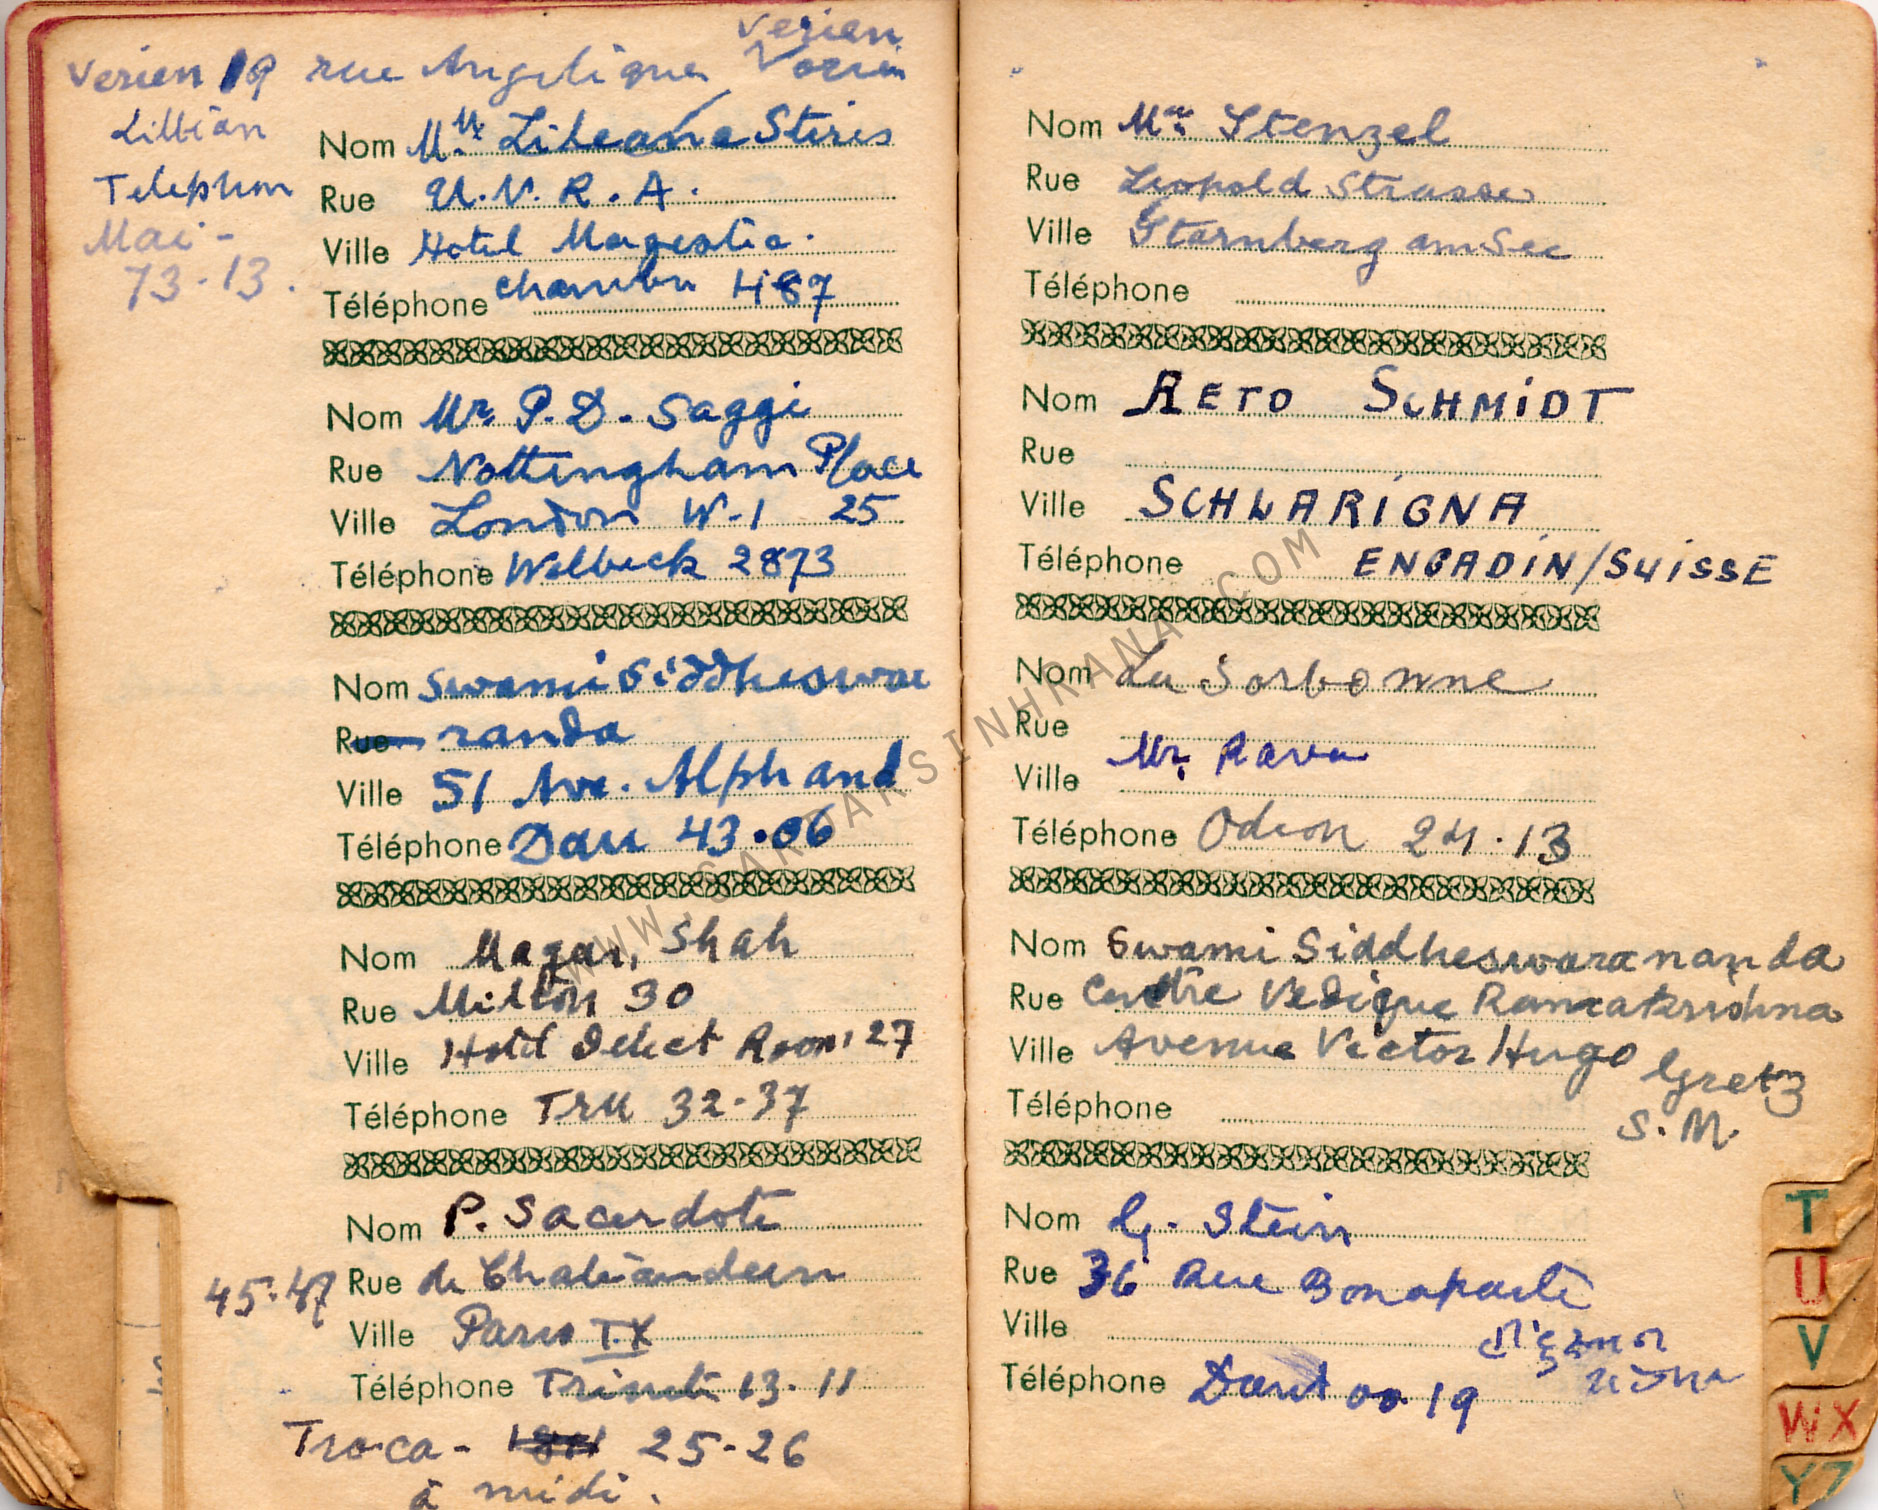 Verien 19 rue Angelique Verien
Lillian
Telephon
Mai -
73-13.
Nom Mlle Lileane Stiris
Rue U.N.R.A.
Ville Hotel Magestic.
Téléphone chambre 487
Nom Mr. P. D. Saggi
Rue Nottingham Place
Ville London W-1 25
Téléphone Welbeck 2873
Nom Swami Siddheswa
Rue randa
Ville 51 Ave. Alphand
Téléphone Dau 43.06
Nom Magan, Shah
Rue Milton 30
Ville Hotel Select Room 27
Téléphone TRU 32-37
Nom P. Sacerdote
45-47 Rue de Chateaudun
Ville Paris IX
Téléphone Trinité 13-11
Troca - 25-26
à midi.
Nom Mr. Stenzel
Rue Leopold Strasse
Ville Starnberg am See
Téléphone
Nom RETO SCHMIDT
Rue
Ville SCHLARIGNA
Téléphone ENGADIN/SUISSE
Nom La Sorbonne
Rue
Ville Mr. Ravu
Téléphone Odeon 24.13
Nom Swami Siddheswarananda
Rue Centre Vedique Ramakrishna
Ville Avenue Victor Hugo Gretz
Téléphone S. M.
Nom G. Stein
Rue 36 Rue Bonaparte
Ville
Téléphone Dant 00 19
T
U
V
WX
YZ
WWW.SARDARSINHRANA.COM